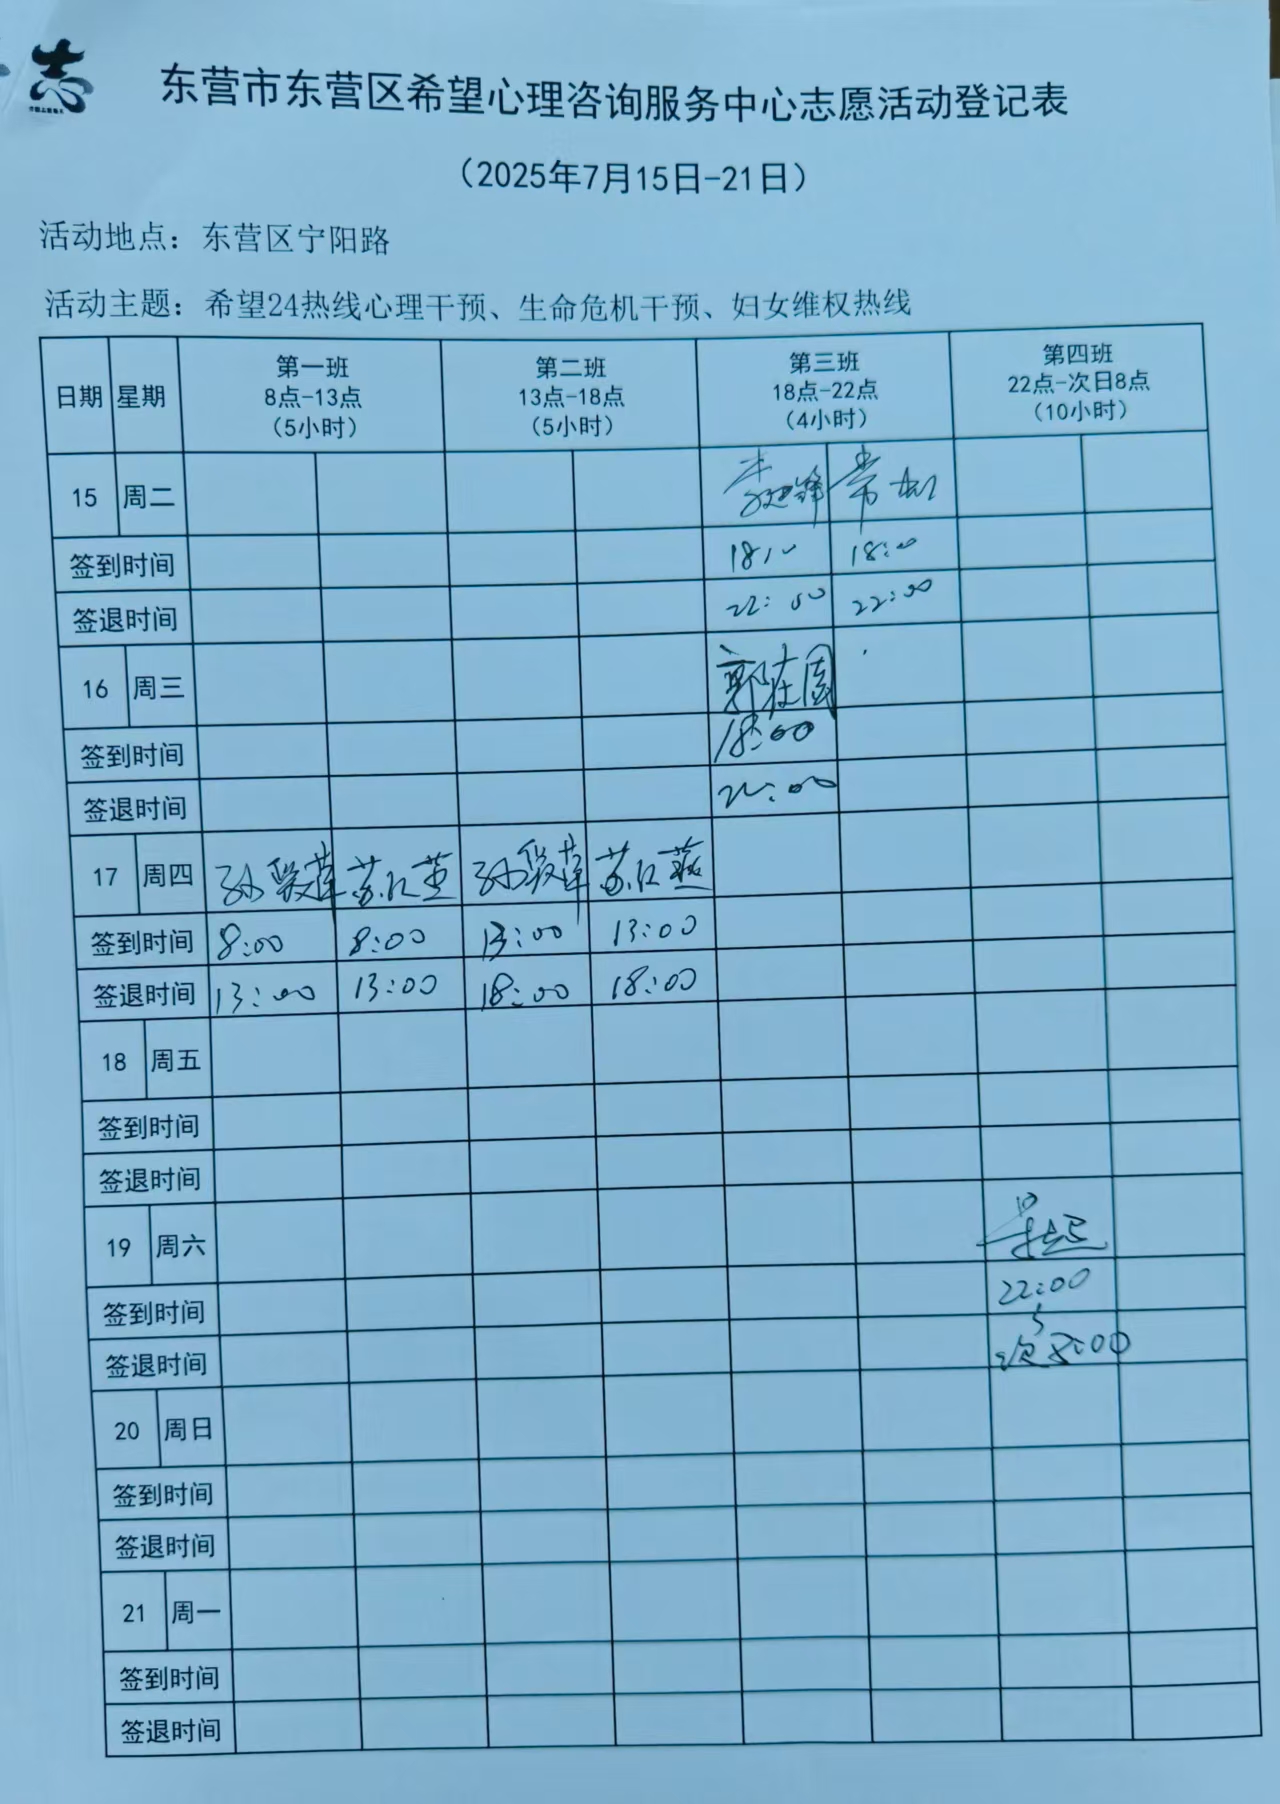 志
东营市东营区希望心理咨询服务中心志愿活动登记表
（2025年7月15日-21日）
活动地点：东营区宁阳路
活动主题：希望24热线心理干预、生命危机干预、妇女维权热线
日期 星期 第一班 8点-13点 （5小时） 第二班 13点-18点 （5小时） 第三班 18点-22点 （4小时） 第四班 22点-次日8点 （10小时）
15 周二
签到时间 18:00
签退时间 22:00 22:00
16 周三
签到时间 18:00
签退时间 22:00
17 周四
签到时间 8:00 8:00 13:00 13:00
签退时间 13:00 13:00 18:00 18:00
18 周五
签到时间
签退时间
19 周六
签到时间 22:00
签退时间 次8:00
20 周日
签到时间
签退时间
21 周一
签到时间
签退时间